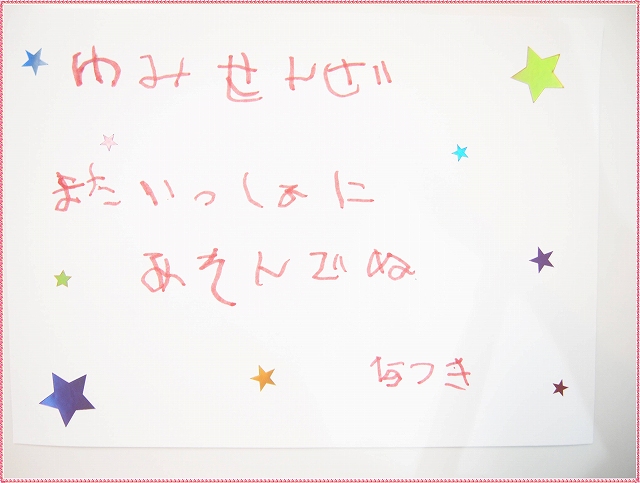 ゆみせんせい
またいっしょに
あそんでね
なつき